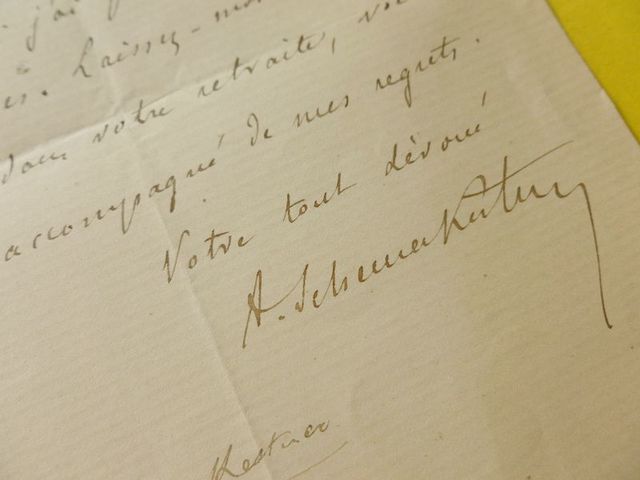 j'ai
Laissez-moi
dans votre retraite,
accompagné de mes regrets.
Votre tout dévoué
A. Scheurer Kestner
Kestner